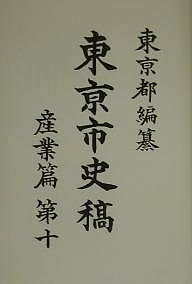 東京都編纂
東京市史稿
産業篇第十